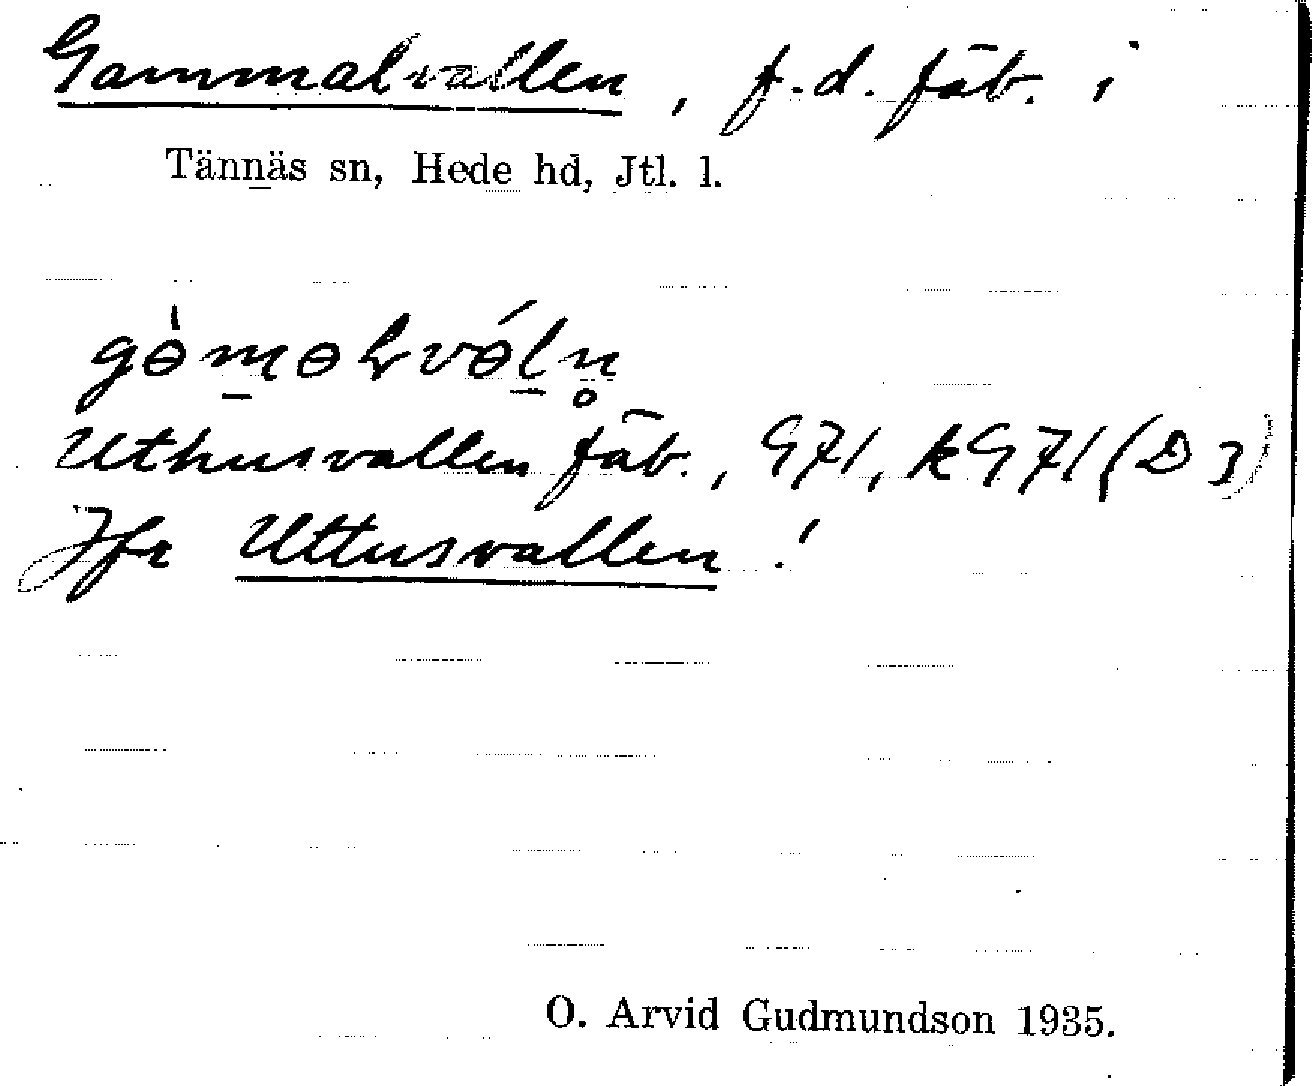 Gammalvallen, f.d. fäb. i
Tännäs sn, Hede hd, Jtl. l.
gɵ̀m̲ɵƚvɵ́l̲n̥
Uthusvallen fäb., G71, kG71 (D3)
Jfr Uttusvallen!
O. Arvid Gudmundson 1935.